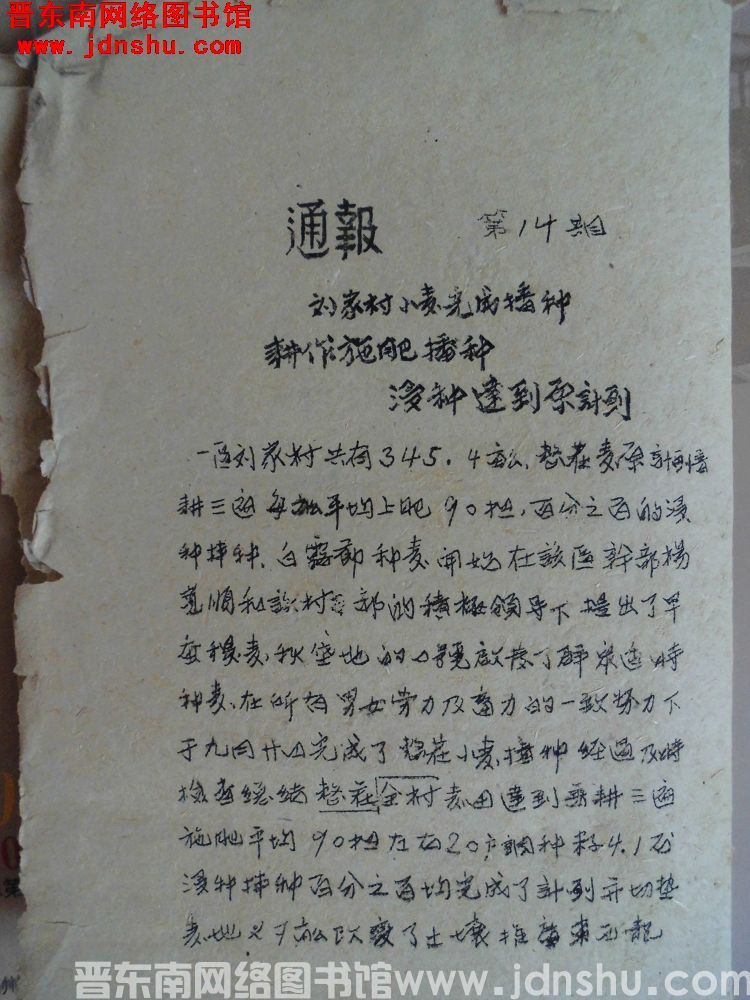 晋东南网络图书馆
www.jdnshu.com
通報 第14期
刘家村小麦完成播种
耕作施肥播种
浸种達到原計划
一區刘家村共有345.4亩，整庄麦原計划
耕三遍每亩平均上肥90担，百分之百的浸
种拌种，白露節种麦開始在該區幹部楊
順和該村部的積極領导下提出了早
麦秋空地的口號啟發了群眾適時
种麦，在所有男女劳力及畜力的一致努力下
于九月廿四完成了整庄小麦播种经過及時
檢查总结整庄全村麦田達到耕三遍
施肥平均90担左右20户調种籽4.1石
浸种拌种百分之百均完成了計划并切垫
麦地亩改變了土壤推廣
晋东南网络图书馆www.jdnshu.com